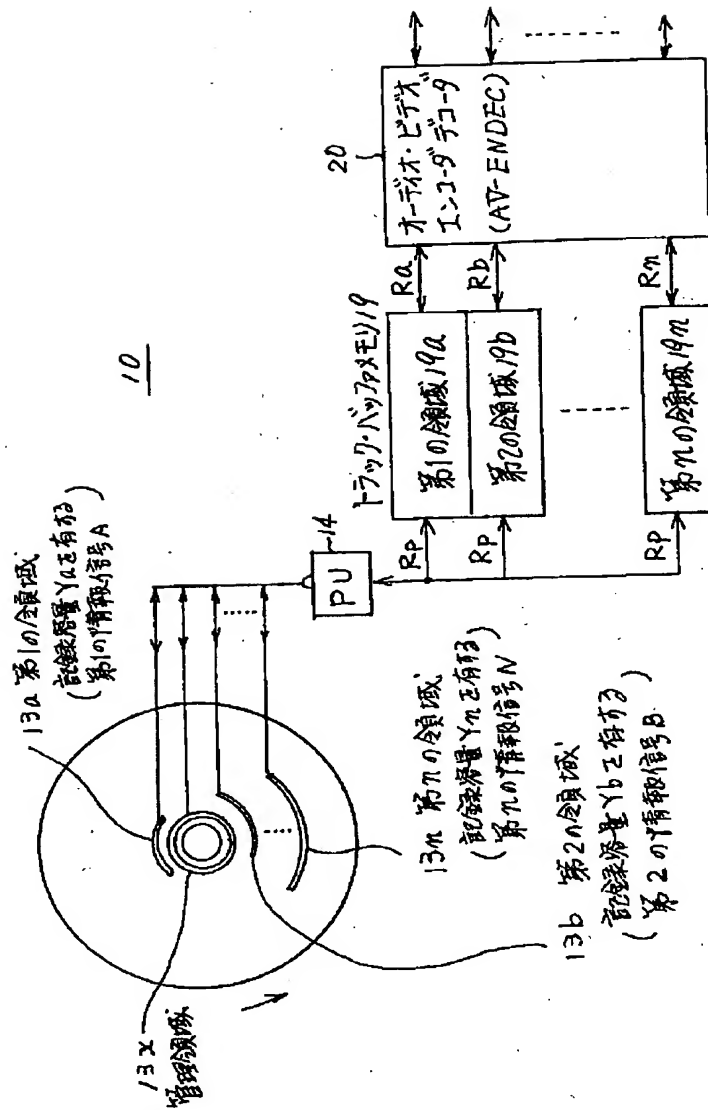 10
13a 第1の領域
記録容量Yaを有する
(第1の情報信号A)
13x
管理領域
13n 第nの領域
記録容量Ynを有する
(第nの情報信号N)
13b 第2の領域
記録容量Ybを有する
(第2の情報信号B)
PU
14
Rp
Rp
Rp
トラック・バッファメモリ19
第1の領域19a
第2の領域19b
第nの領域19n
Ra
Rb
Rn
20
オーディオ・ビデオ
エンコーダデコーダ
(AV-ENDEC)